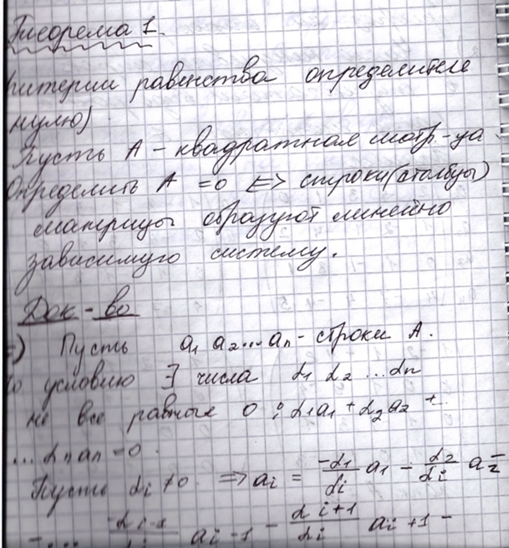 Теорема 1.
критерии равенства определителя
нулю)
Пусть А - квадратная матр-ца
Определить А = 0 <=> строки(столбцы)
матрицы образуют линейно
зависимую систему.
Док-во
=) Пусть a₁ a₂...aₙ - строки А.
По условию ∃ числа α₁ α₂ ... αₙ
не все равные 0 : α₁a₁ + α₂a₂ +
... αₙaₙ = 0.
Пусть αᵢ ≠ 0. => aᵢ = -α₁/αᵢ a₁ - α₂/αᵢ a₂ -
- ... αᵢ₋₁/αᵢ aᵢ₋₁ - αᵢ₊₁/αᵢ aᵢ₊₁ -